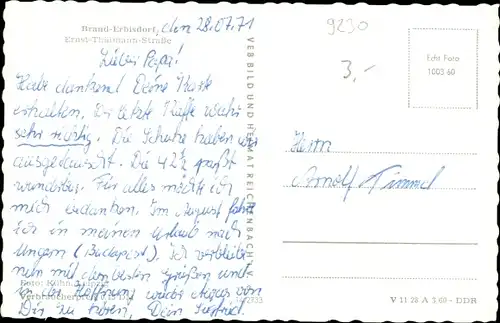 Brand-Erbisdorf, den 28.07.71
Ernst-Thälmann-Straße
Lieber Papa!
Habe dankend Deine Karte
erhalten. Die letzte Kaffe wahr
sehr richtig. Die Schuhe haben wir
ausgetauscht. Die 42½ paßt
wunderbar. Für alles möchte ich
mich bedanken. Im August fahre
ich in meinen Urlaub nach
Ungarn (Budapest). Ich verbleibe
nun mit den besten Grüßen und
in der Hoffnung wieder etwas von
Dir zu hören, Dein
Foto: Kühn,
Verbraucherpreis
VEB BILD UND HEIMAT REICHENBACH
9230
3,-
Echt Foto
1003 60
Herrn
Arnolf Timmel
V 11 28 A 3/69 – DDR